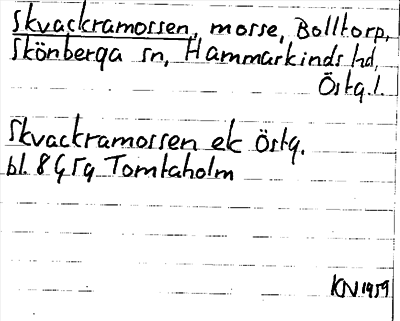 Skvackramossen, mosse, Bolltorp,
Skönberga sn, Hammarkinds hd,
Östg.l.
Skvackramossen ek Östg.
bl. 8 G 5g Tomtaholm
KN 1959